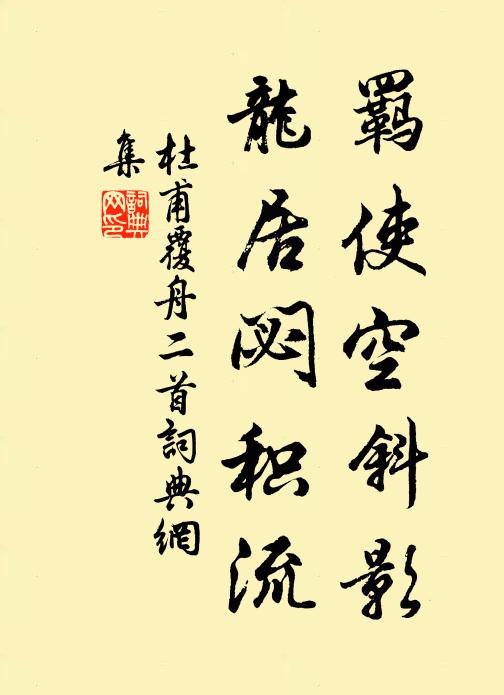 羈使空斜影
龍居閟积流
杜甫覆舟二首詞典網
集
詞典网印